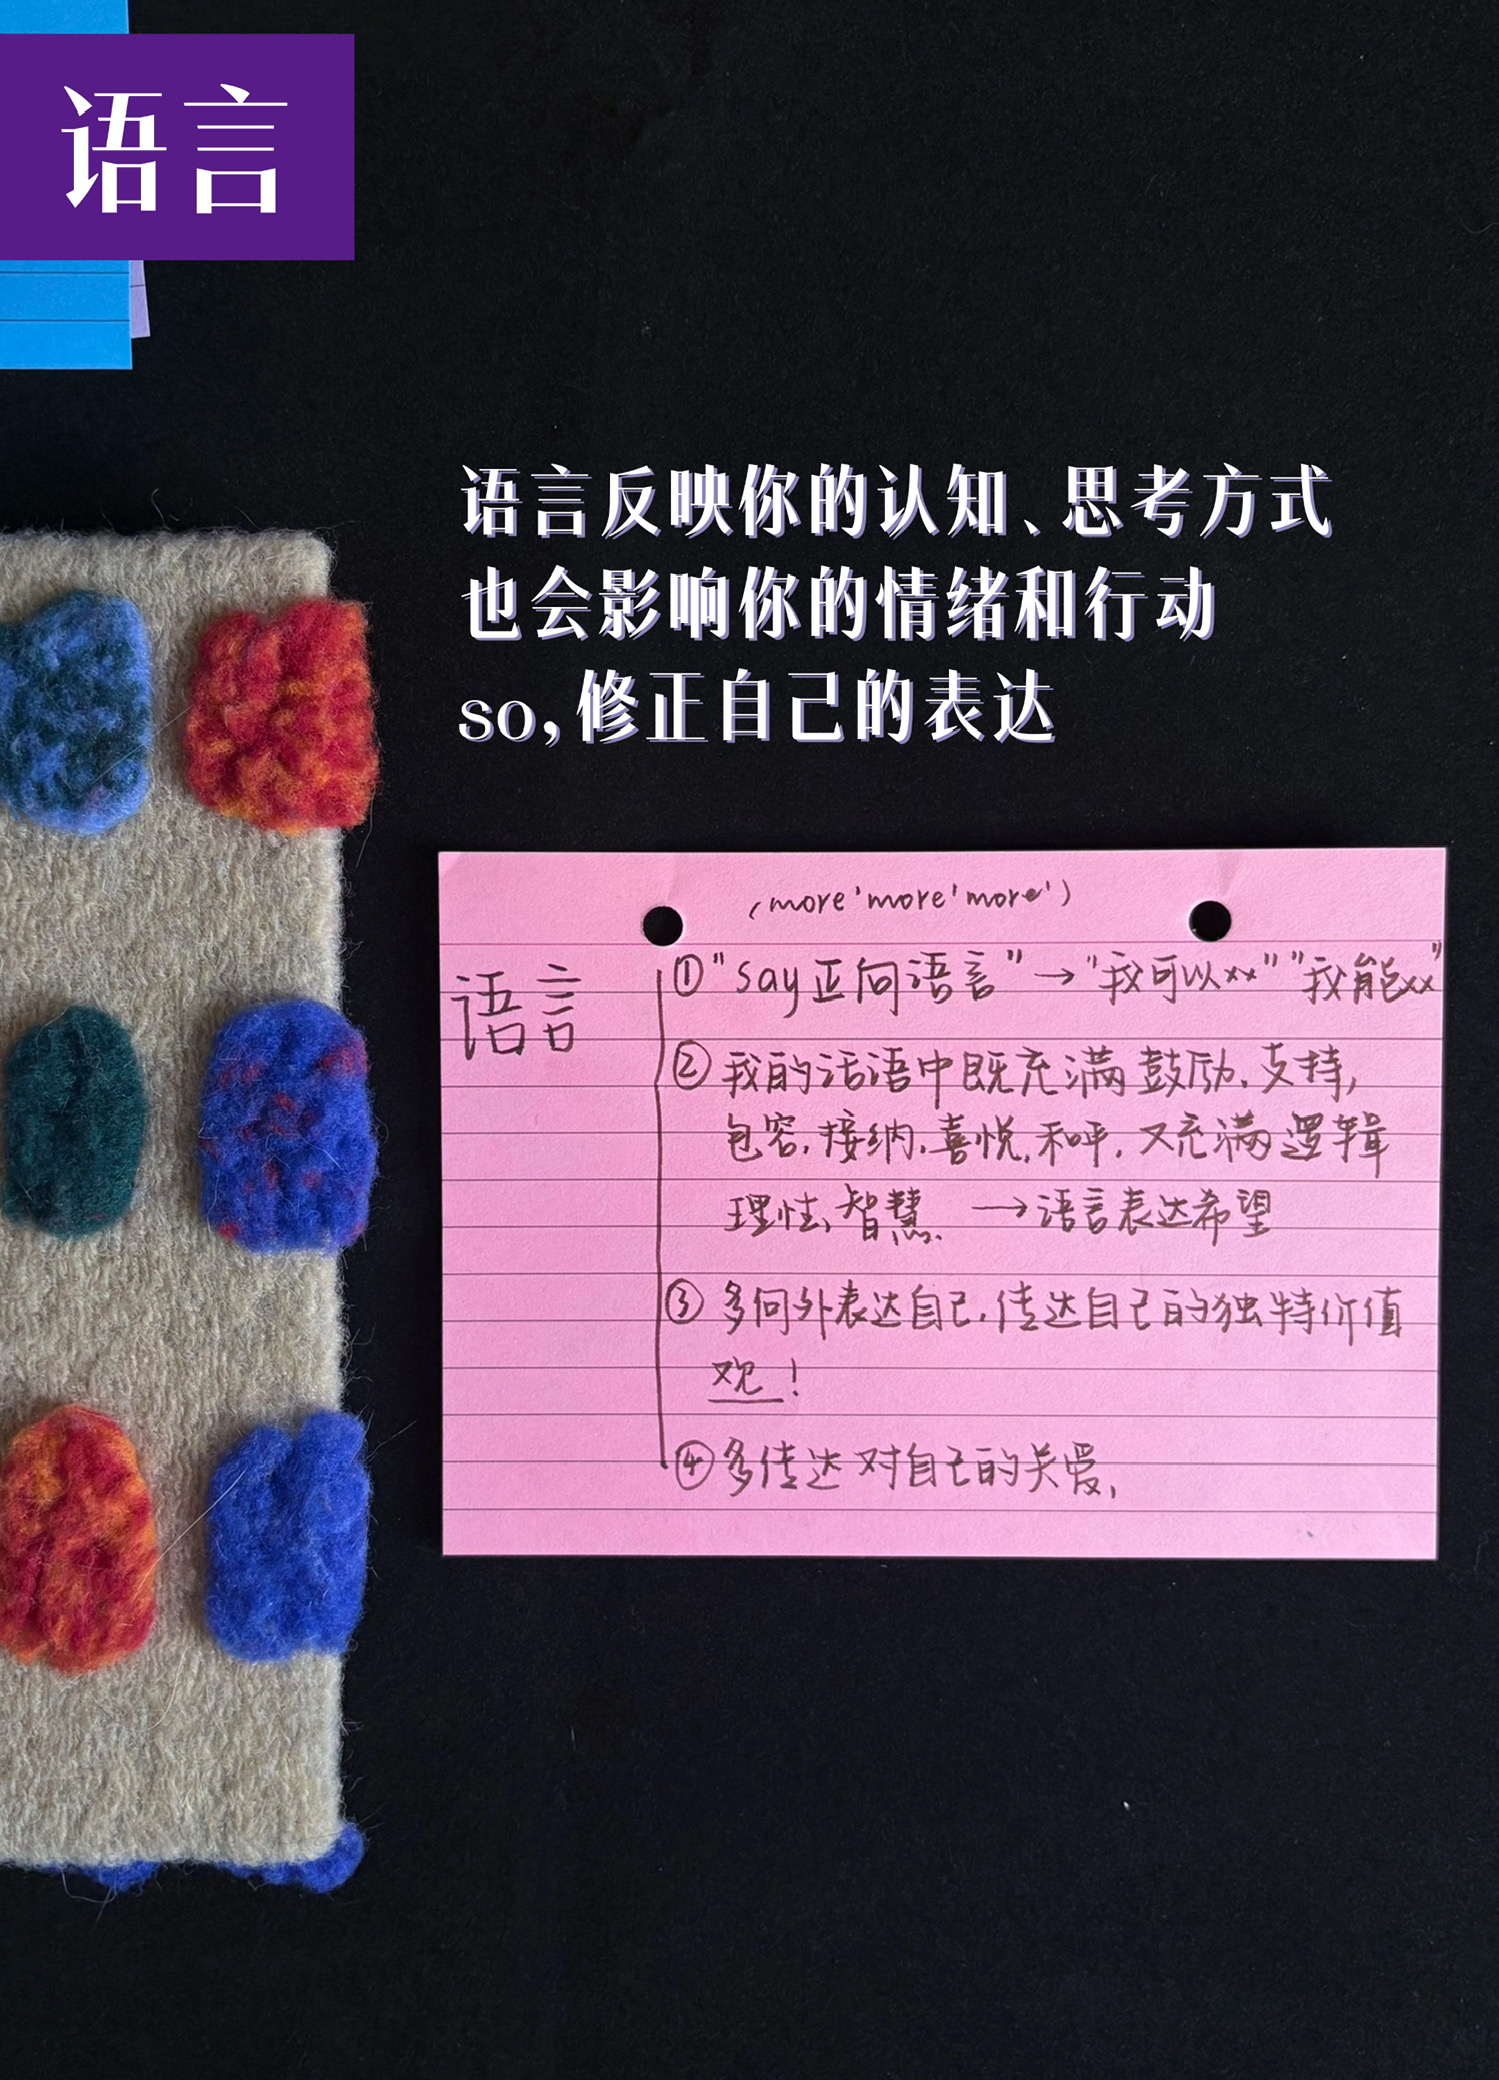 语言
语言反映你的认知、思考方式
也会影响你的情绪和行动
so,修正自己的表达
(more'more'more')
语言
①"say正向语言"→"我可以xx""我能xx"
②我的话语中既充满鼓励、支持,
包容,接纳,喜悦,和平,又充满逻辑
理性、智慧.→语言表达希望
③多向外表达自己,传达自己的独特价值
观!
④多传达对自己的关爱,